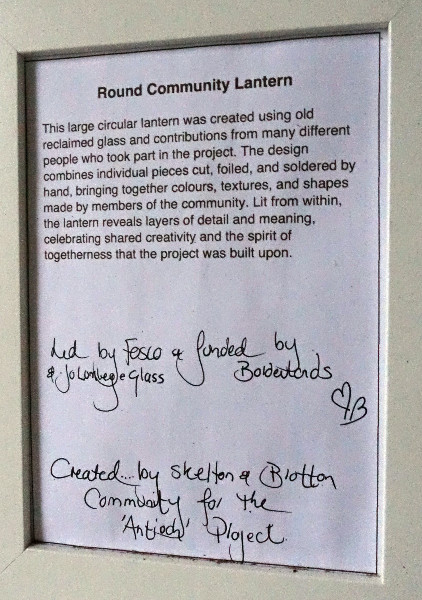 Round Community Lantern
This large circular lantern was created using old
reclaimed glass and contributions from many different
people who took part in the project. The design
combines individual pieces cut, foiled, and soldered by
hand, bringing together colours, textures, and shapes
made by members of the community. Lit from within,
the lantern reveals layers of detail and meaning,
celebrating shared creativity and the spirit of
togetherness that the project was built upon.
Led by & funded by
& Glass Borderlands
B
Created... by Skelton & Brotton
Community for the
Project.